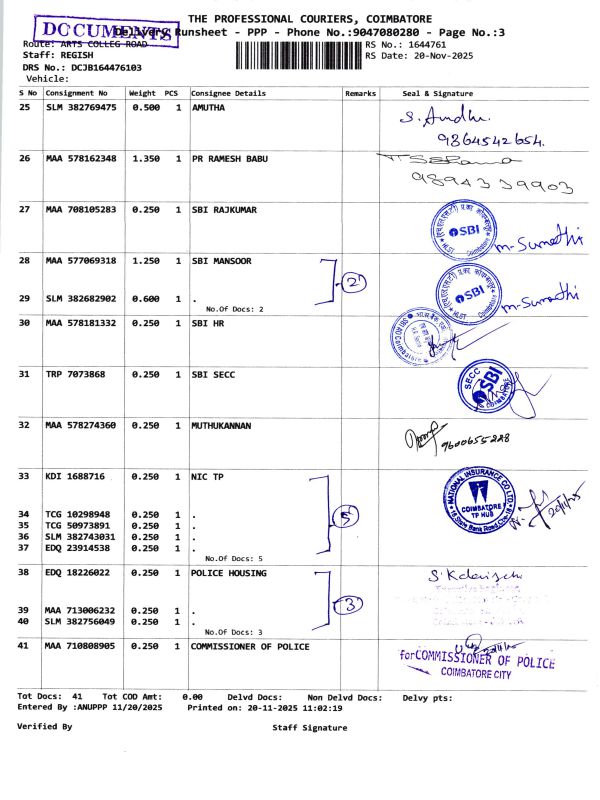 THE PROFESSIONAL COURIERS, COIMBATORE
DOCUMENTS
Delivery Runsheet - PPP - Phone No.:9047080280 - Page No.:3
Route: ARTS COLLEG ROAD
RS No.: 1644761
Staff: REGISH
RS Date: 20-Nov-2025
DRS No.: DCJB164476103
Vehicle:
S No Consignment No Weight PCS Consignee Details Remarks Seal & Signature
25 SLM 382769475 0.500 1 AMUTHA
9864542654.
26 MAA 578162348 1.350 1 PR RAMESH BABU
9894339903
27 MAA 708105283 0.250 1 SBI RAJKUMAR
SBI
m-Sumathi
28 MAA 577069318 1.250 1 SBI MANSOOR
2
SBI
m-Sumathi
29 SLM 382682902 0.600 1 .
No.Of Docs: 2
30 MAA 578181332 0.250 1 SBI HR
31 TRP 7073868 0.250 1 SBI SECC
SECC
SBI
COIMBATORE
32 MAA 578274360 0.250 1 MUTHUKANNAN
9600655228
33 KDI 1688716 0.250 1 NIC TP
NATIONAL INSURANCE CO LTD
COIMBATORE
TP HUB
20/11/25
34 TCG 10298948 0.250 1 .
5
35 TCG 50973891 0.250 1 .
36 SLM 382743031 0.250 1 .
37 EDQ 23914538 0.250 1 .
No.Of Docs: 5
38 EDQ 18226022 0.250 1 POLICE HOUSING
3
39 MAA 713006232 0.250 1 .
40 SLM 382756049 0.250 1 .
No.Of Docs: 3
41 MAA 710808905 0.250 1 COMMISSIONER OF POLICE
for COMMISSIONER OF POLICE
COIMBATORE CITY
Tot Docs: 41 Tot COD Amt: 0.00 Delvd Docs: Non Delvd Docs: Delvy pts:
Entered By :ANUPPP 11/20/2025 Printed on: 20-11-2025 11:02:19
Verified By Staff Signature